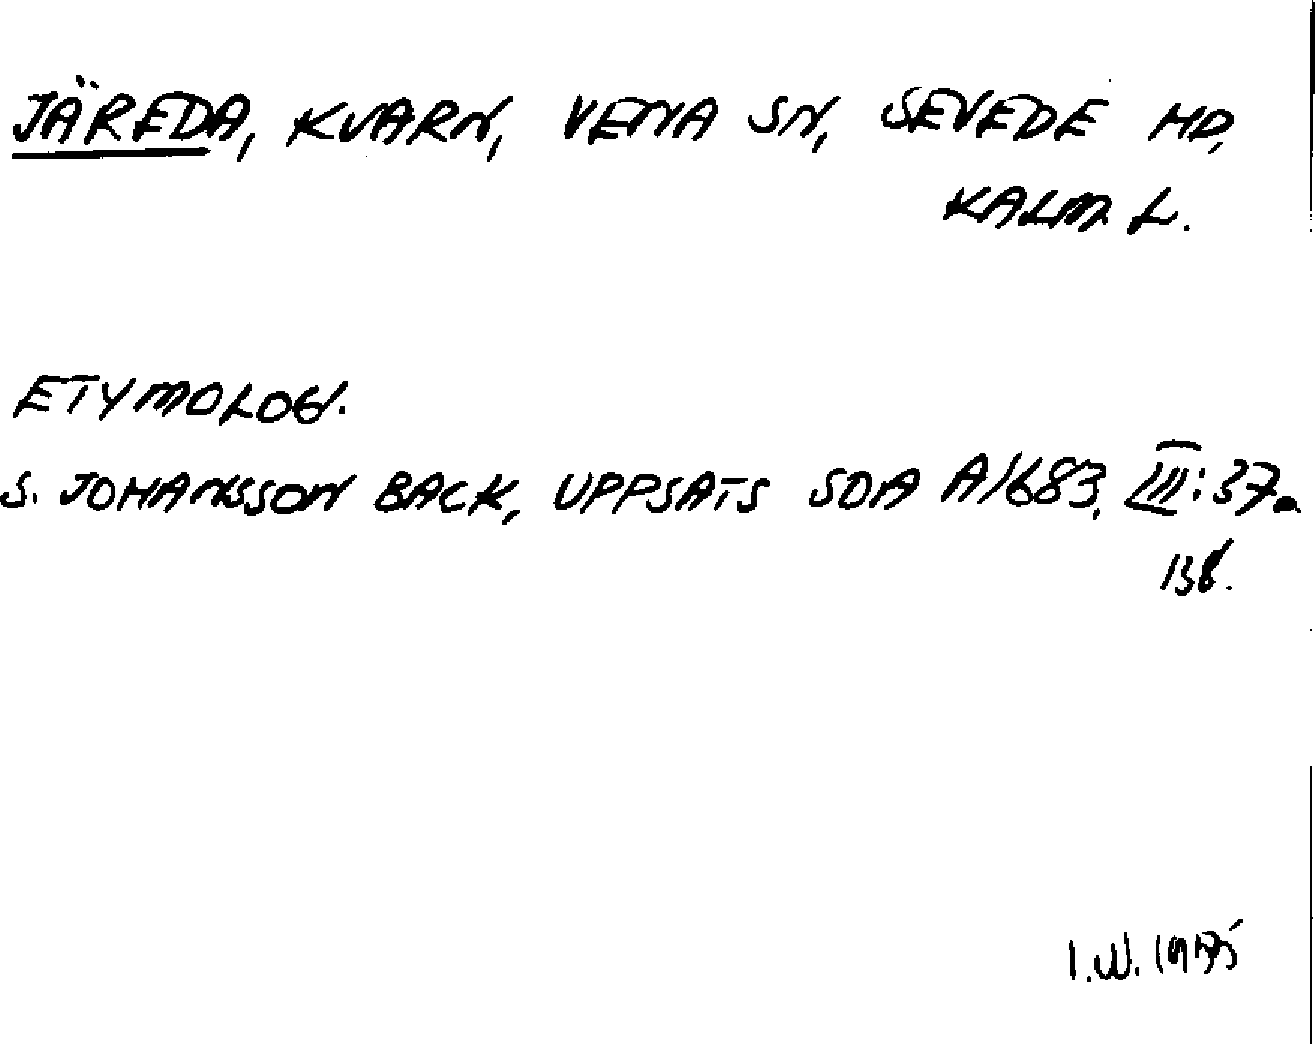 JÄREDA, KVARN, VENA SN, SEVEDE HD,
KALM. L.
ETYMOLOGI.
S. JOHANSSON BACK, UPPSATS SOA A/683, III:37.
138.
I.W. 1975